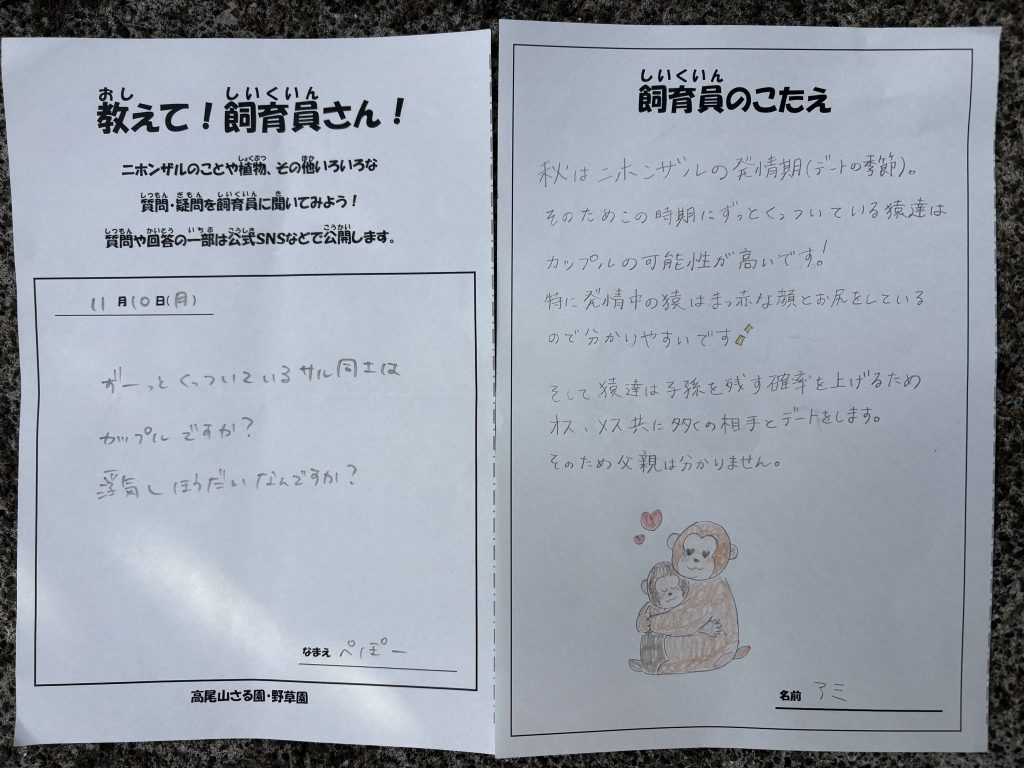 教えて！飼育員さん！
ニホンザルのことや植物、その他いろいろな
質問・疑問を飼育員に聞いてみよう！
質問や回答の一部は公式SNSなどで公開します。
11月10日(月)
ずーっとくっついているサル同士は
カップルですか？
浮気しほうだいなんですか？
なまえ ペぽー
高尾山さる園・野草園
飼育員のこたえ
秋はニホンザルの発情期(デートの季節)。
そのためこの時期にずっとくっついている猿達は
カップルの可能性が高いです！
特に発情中の猿はまっ赤な顔とお尻をしている
ので分かりやすいです
そして猿達は子孫を残す確率を上げるため
オス、メス共に多くの相手とデートをします。
そのため父親は分かりません。
名前 アミ